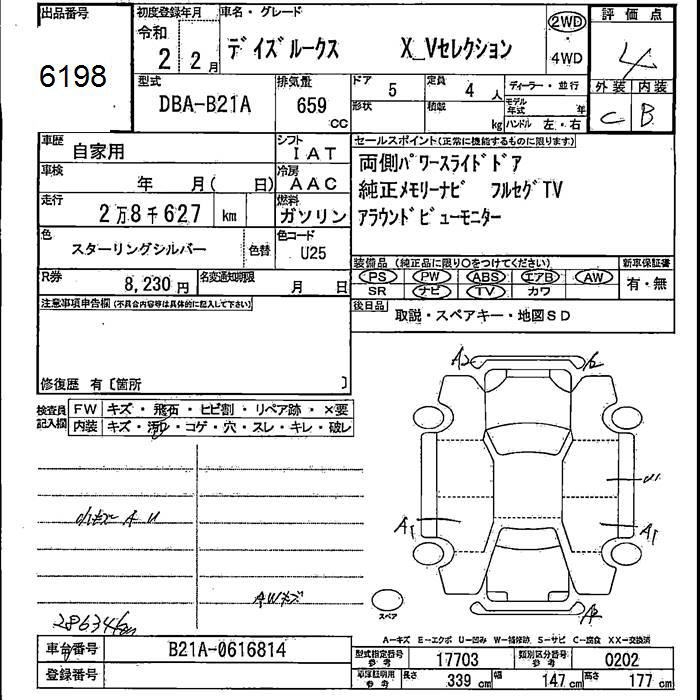 出品番号 初度登録年月 車名・グレード 2WD 評価点
令和
6198 2 2月 デイズルークス X_Vセレクション 4WD 4
型式 排気量 ドア 5 定員 4人 ディーラー・並行 外装 内装
DBA-B21A 659 CC 形状 積載 kg モデル年式 年 C B
ハンドル 左・右
車歴 自家用 シフト IAT セールスポイント(正常に機能するものに限ります)
車検 年 月( 日) 冷房 AAC 両側パワースライドドア
走行 2万8千627 km 燃料 ガソリン 純正メモリーナビ フルセグTV
アラウンドビューモニター
色 スターリングシルバー 色替 色コード U25
装備品(純正品に限り○をつけてください) 新車保証書
R券 8,230円 名変通知期限 月 日 PS PW ABS エアB AW 有・無
SR ナビ TV カワ
注意事項申告欄(不具合内容等は具体的に記入して下さい) 後日品 取説・スペアキー・地図SD
修復歴 有〔箇所 〕
A2
検査員記入欄 FW キズ・飛石・ヒビ割・リペア跡・×要
内装 キズ・汚れ・コゲ・穴・スレ・キレ・破レ
U1
A U
A1 A1
AWキズ
スペア
A2
28634km
A-キズ E-エクボ U-凹み W-補修跡 S-サビ C-腐食 XX-交換済
車台番号 B21A-0616814 型式指定番号 参考 17703 類別区分番号 参考 0202
登録番号 車庫証明用 参考 長さ 339 cm 幅 147 cm 高さ 177 cm